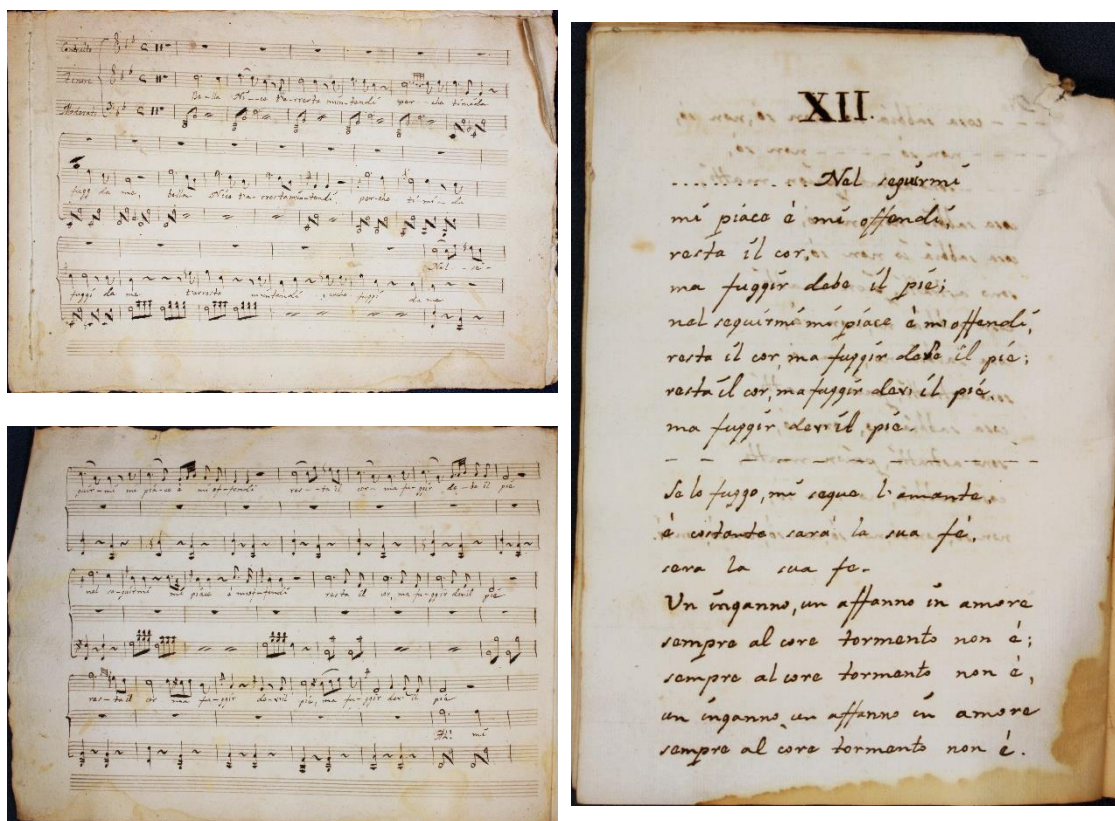 Contralto
Tenore
Bella Ni--ce t'a-rresta m'in-tendi per-che timida
fuggi da me, bella Nice t'a-rresta m'intendi. perche ti mi-da
Nel - se-
fuggi da me t'arresta m'intendi fuggi da me
guir-mi mi pia-ce è mi of-fendi res--ta il cor- ma fu-ggir de-be il piè
nel se-guirmi mi piace è mi of-fendi resta il cor, ma fu-ggir devi il piè
res-ta il cor ma fu-ggir devi il piè, ma fu-ggir devi il piè
Ah! mi
XII.
........... Nel seguirmi
mi piace è mi offendi,
resta il cor,
ma fuggir debe il piè;
nel seguirmi mi piace è mi offendi,
resta il cor, ma fuggir debe il piè;
resta il cor, ma fuggir devi il piè
ma fuggir devi il piè.
Se lo fuggo, mi segue l'amante,
è costante sarà la sua fè,
sera la sua fe.
Un inganno, un affanno in amore
sempre al core tormento non è;
sempre al core tormento non è,
un inganno, un affanno in amore
sempre al core tormento non è.